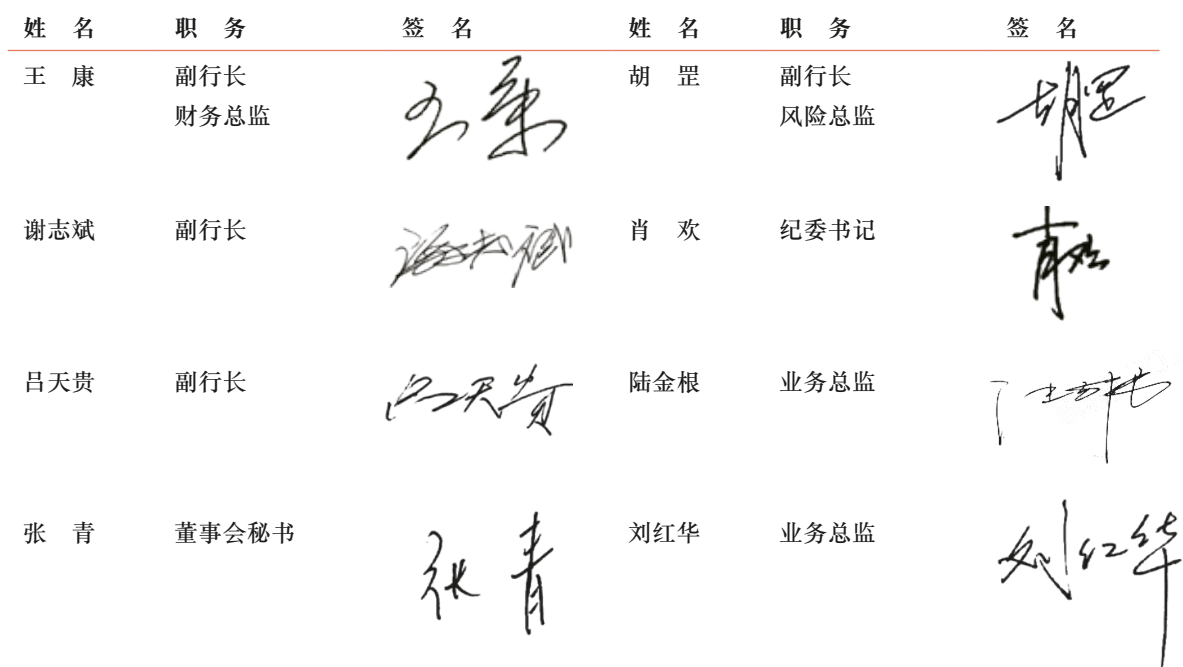 姓 名 职 务 签 名 姓 名 职 务 签 名
王 康 副行长 王康 胡 罡 副行长 胡罡
财务总监 风险总监
谢志斌 副行长 谢志斌 肖 欢 纪委书记 肖欢
吕天贵 副行长 吕天贵 陆金根 业务总监
张 青 董事会秘书 张青 刘红华 业务总监 刘红华